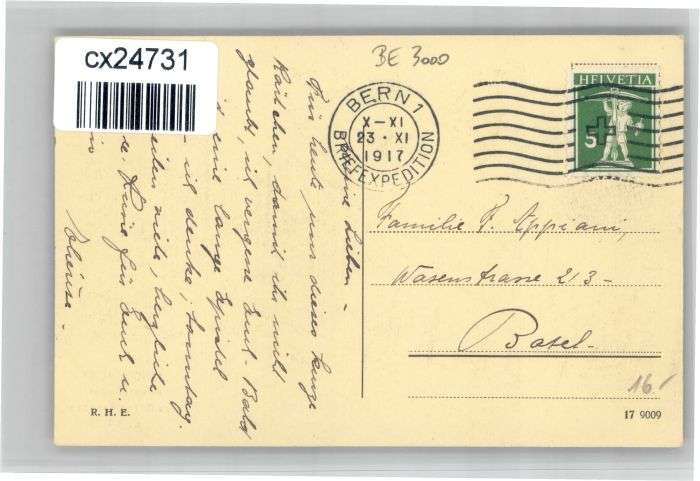 cx24731
BE 3000
BERN 1
X-XI
23 · XI
1917
BRIEFEXPEDITION
HELVETIA
5
Familie F. Appiani,
Wasenstrasse 213-
Basel.
16
R. H. E.
17 9009
Lieben -
Für heute nur dieses kurze
Kärtchen, damit ihr nicht
glaubt, ich vergesse Euch. Bald
eine lange Epistel
- ich denke, Sonntag.
viele, herzliche
Küsse für Euch u.